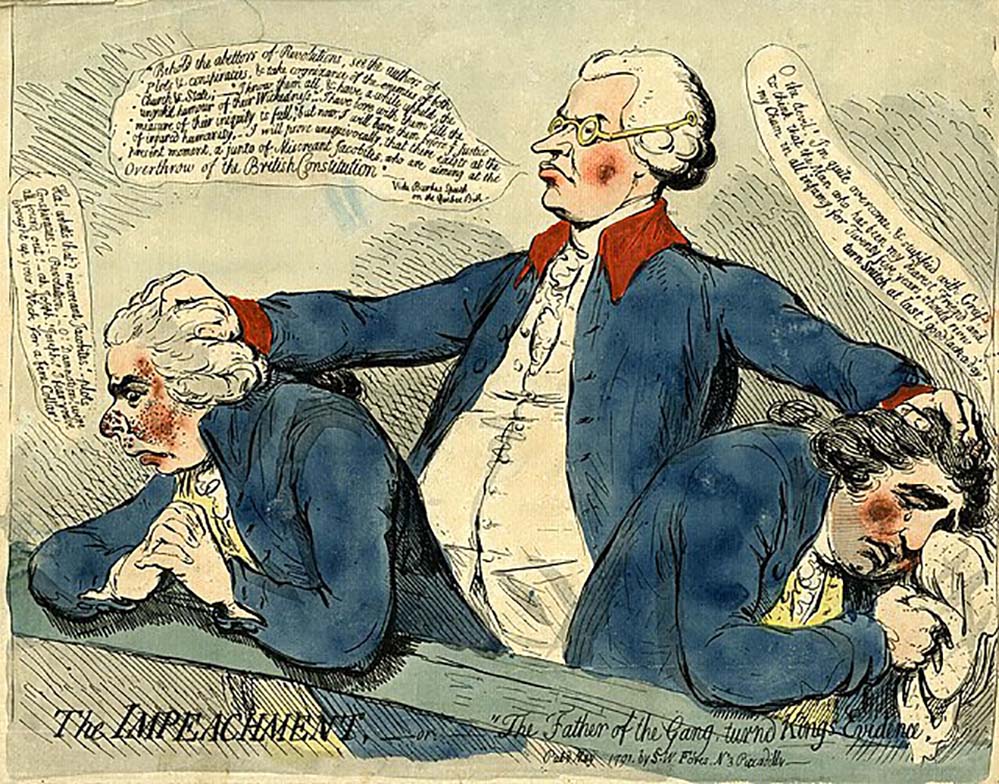 "Behold the abettors of Revolutions, see the authors of
Plots & conspiracies, & take cognizance of the enemies of both
Church & State; — I know them all, & have a while upheld the
ungodly humour of their Wickedness. I have bore with them till the
measure of their inequity is full, but now I will have them before ye Justice
of injured humanity. — I will prove unequivocally, that there exists at the
present moment, a junto of Miscreant Jacobites, who are aiming at the
Overthrow of the British Constitution"
Vide Burkes Speech
on the Quebec Bill
Ha! whats that? miscreant Jacobites! Plots,
Conspiracies! Revolutions. O damn'd
all found out! — ah Joseph! Joseph! I fear you've
brought up your Neck for a Collar
O the devil! I'm quite overcome, & stupified with Grief;
to think that the Man who has been my dearest Friend, and
my Chum in all infamy for Twenty five years, should
turn Snitch at last! good lack-a-day!
The IMPEACHMENT, — or — "The Father of the Gang, turnd Kings Evidence."
Pubd May 1791. by S. W. Fores. N 3 Piccadilly —